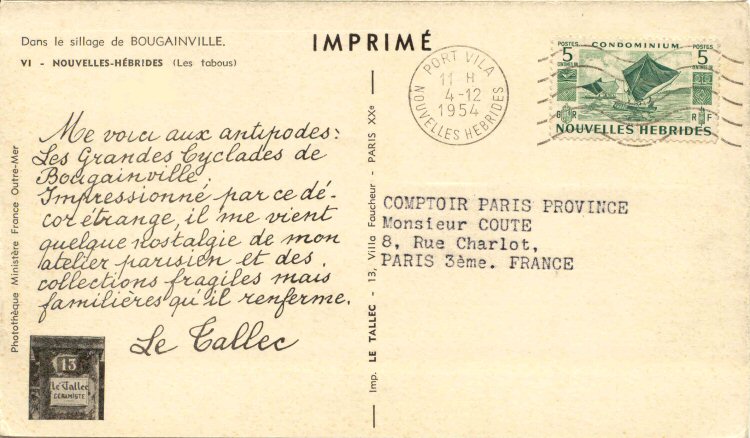 Dans le sillage de BOUGAINVILLE.
VI - NOUVELLES-HÉBRIDES (Les tabous)
Me voici aux antipodes:
Les Grandes Cyclades de
Bougainville.
Impressionné par ce dé-
cor étrange, il me vient
quelque nostalgie de mon
atelier parisien et des
collections fragiles mais
familières qu'il renferme.
Le Tallec
15
Le Tallec
CÉRAMISTE
Photothèque Ministère France Outre-Mer
Imp. LE TALLEC - 13, Villa Faucheur - PARIS XXe
IMPRIMÉ
PORT VILA
11 H
4-12
1954
NOUVELLES HEBRIDES
POSTES CONDOMINIUM POSTES
5 5
CENTIMES OR CENTIMES OR
G R R F
NOUVELLES HEBRIDES
COMPTOIR PARIS PROVINCE
Monsieur COUTE
8, Rue Charlot,
PARIS 3ème. FRANCE